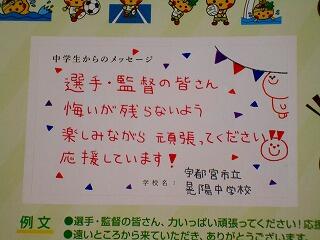 中学生からのメッセージ
選手・監督の皆さん
悔いが残らないよう
楽しみながら 頑張ってください!!
応援しています!
学校名: 宇都宮市立
晃陽中学校
例文
●選手・監督の皆さん、力いっぱい頑張ってください!応援
●遠いところから来ていただき、ありがとうございます。